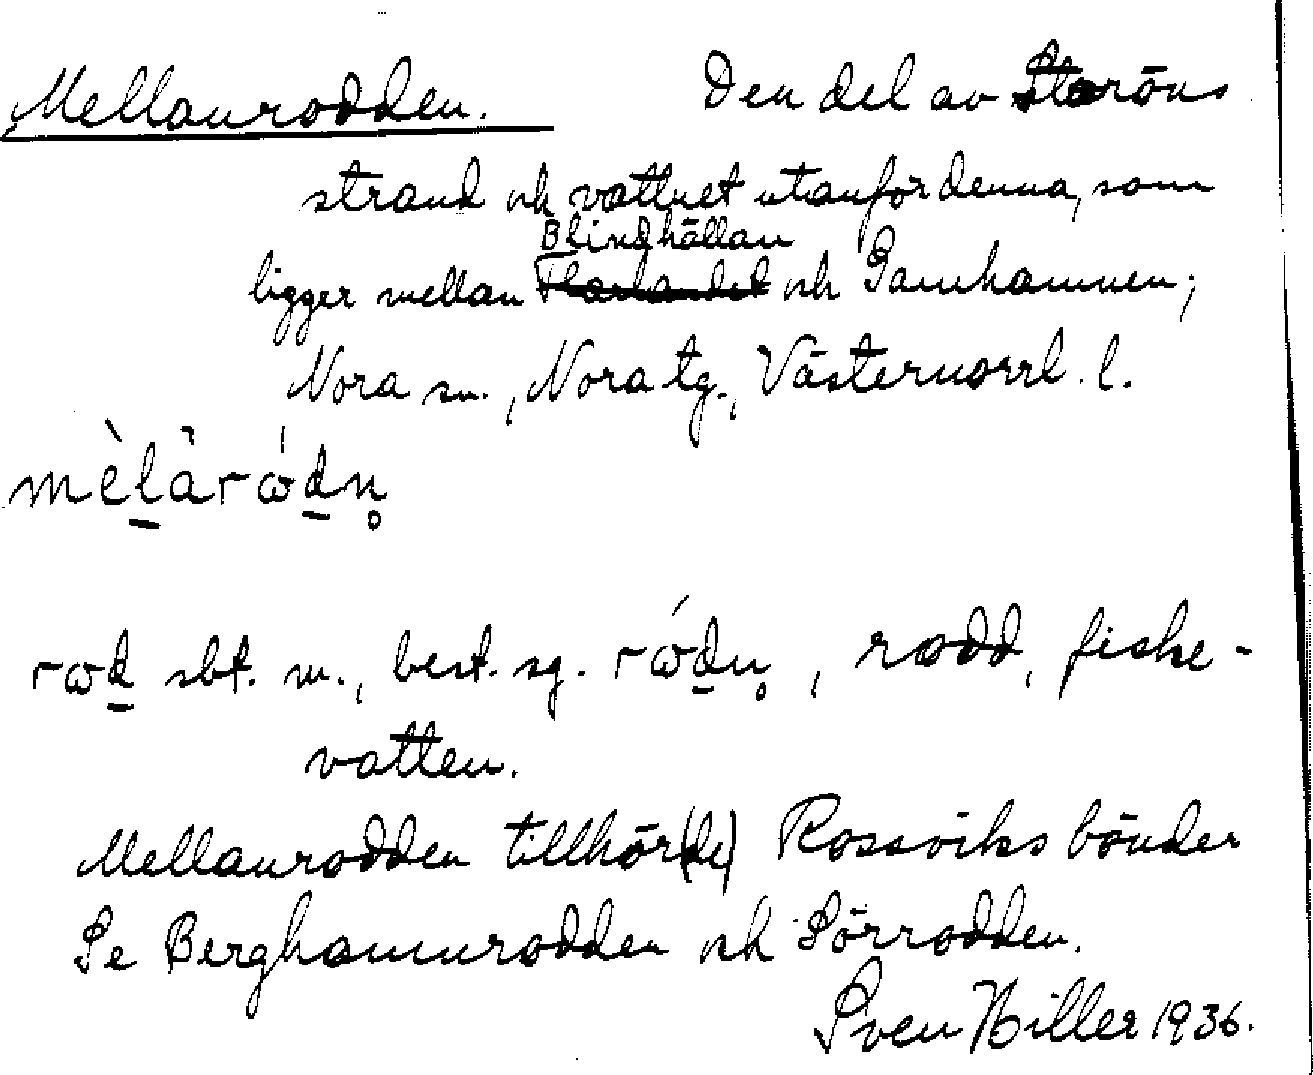 Mellanrodden. Den del av Storöns
strand och vattnet utanför denna, som
Blindhällan
ligger mellan och Gamhamnen;
Nora sn., Nora tg., Västernorrl. l.
mὲl̠àrɷ́d̠n̥
rɷd̠ sbt. m., best. sg. rɷ́d̠n̥, rodd, fiske-
vatten.
Mellanrodden tillhör(de) Rossviks bönder
Se Berghamnrodden och Sörrodden.
Sven Hiller 1936.